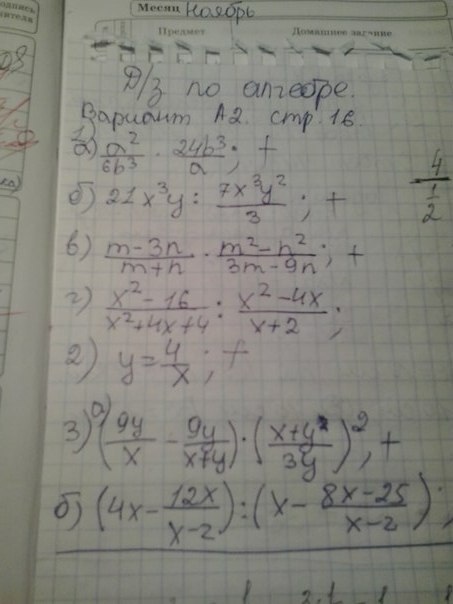 Месяц Ноябрь
Предмет Домашнее задание
Д/з по алгебре.
Вариант А2. стр. 16.
1) а) a²/6b³ · 24b³/a; +
б) 21x³y : 7x³y²/3; +
в) m-3n/m+n · m²-n²/3m-9n; +
г) x²-16/x²+4x+4 : x²-4x/x+2;
2) y=4/x; +
3) а) (9y/x - 9y/x+y) · (x+y/3y)², +
б) (4x - 12x/x-2) : (x - 8x-25/x-2);
4
1/2